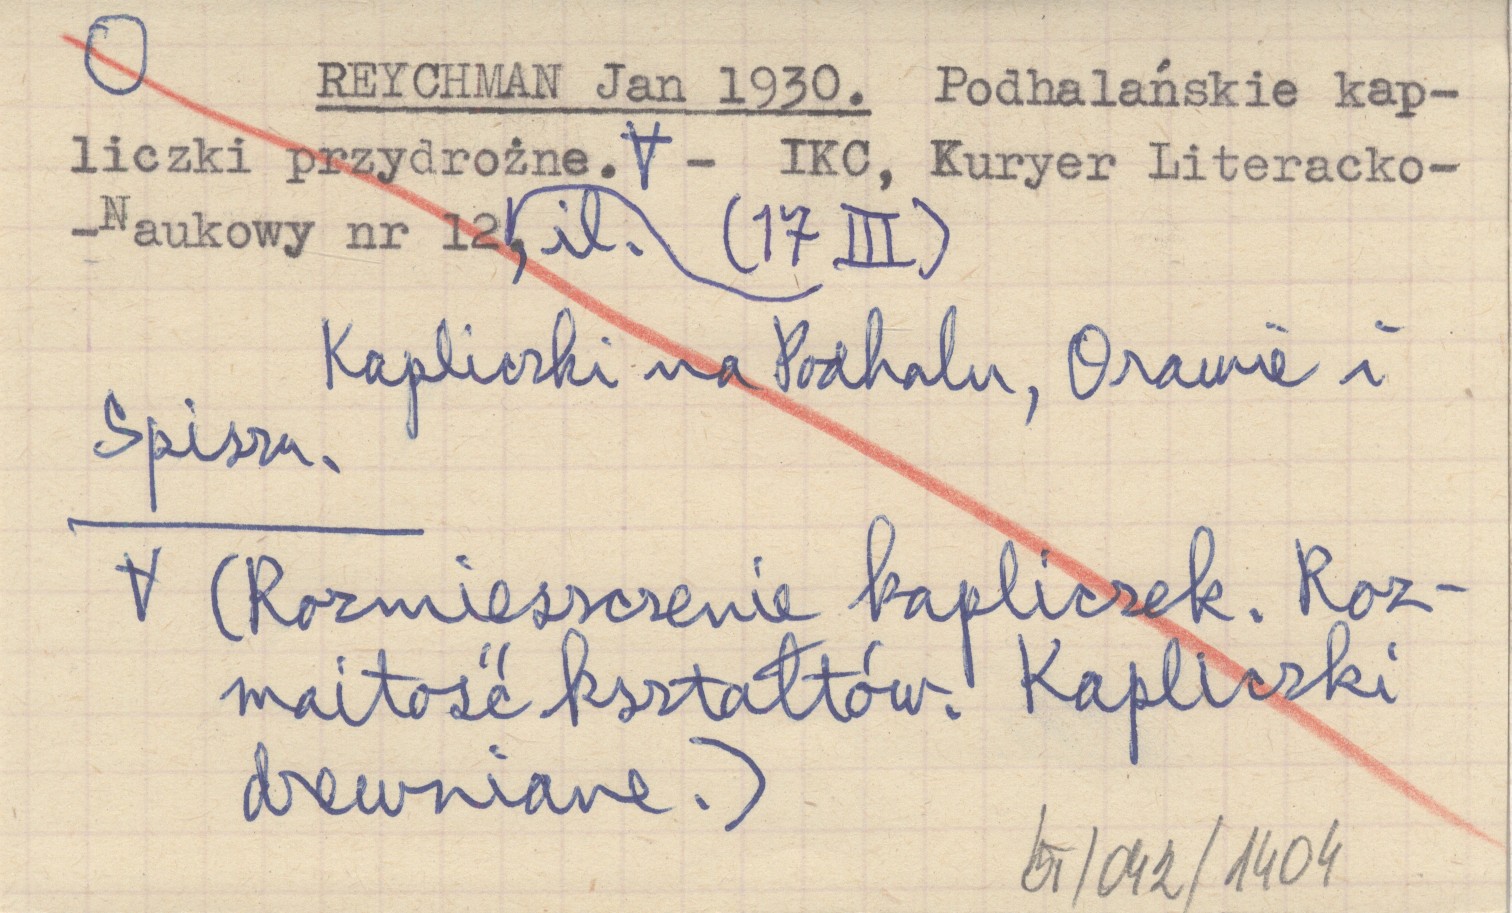 REYCHMAN Jan 1930. Podhalańskie kap-
liczki przydrożne. ∀ - IKC, Kuryer Literacko-
-Naukowy nr 12, il. (17 III)
Kapliczki na Podhalu, Orawie i
Spiszu.
∀ (Rozmieszczenie kapliczek. Roz-
maitość kształtów. Kapliczki
drewniane.)
/042/1404